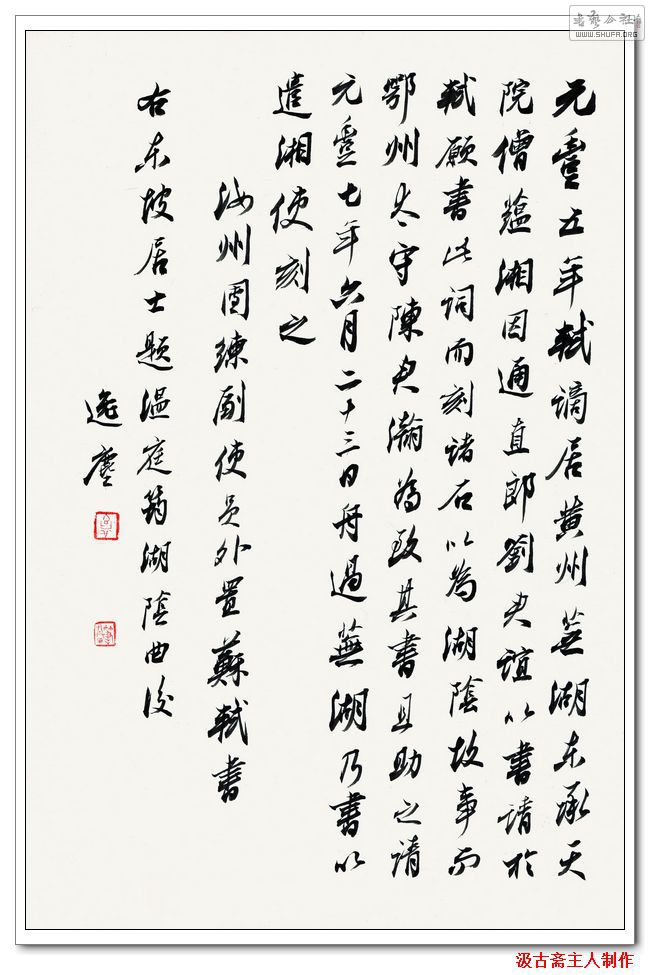 元豐五年軾謫居黄州芜湖东承天
院僧蕴湘因通直郎劉君誼以書請於
軾願書此詞而刻诸石以為湖陰故事而
鄂州太守陳君瀚為致其書且助之請
元豐七年六月二十三日舟過蕪湖乃書以
遺湘使刻之
汝州团練副使员外置蘇軾書
右东坡居士题温庭筠湖陰曲後
逸塵
書藝公社
WWW.SHUFA.ORG
汲古斋主人制作